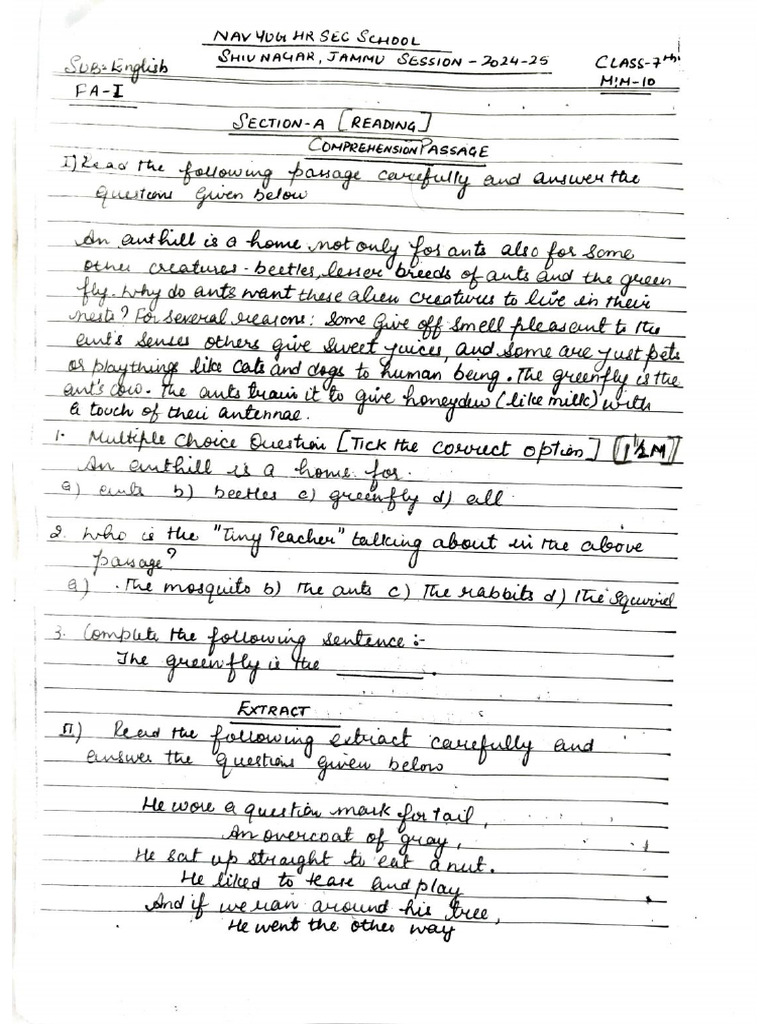 NAV YUG HR SEC SCHOOL
SHIV NAGAR, JAMMU SESSION - 2024-25
CLASS-7th
SUB: English
M:M-10
FA-I
SECTION-A [READING]
COMPREHENSION PASSAGE
I) Read the following passage carefully and answer the
questions Given below
An anthill is a home not only for ants also for some
other creatures - beetles, lesser breeds of ants and the green
fly. Why do ants want these alien creatures to live in their
nests? For several reasons: Some Give off smell pleasant to the
ant's senses others give sweet juices, and some are just pets
or playthings like cats and dogs to human being. The greenfly is the
ant's cow. The ants train it to give honeydew (like milk) with
a touch of their antennae.
1. Multiple Choice Question [Tick the correct option] [1½M]
An anthill is a home for.
a) ants b) beetles c) greenfly d) all
2. Who is the "Tiny Teacher" talking about in the above
passage?
a) The mosquito b) The ants c) The rabbits d) The Squirrel
3. Complete the following sentence :-
The greenfly is the ________.
EXTRACT
II) Read the following extract carefully and
answer the questions given below
He wore a question mark for tail,
An overcoat of gray,
He sat up straight to eat a nut.
He liked to tease and play
And if we ran around his tree,
He went the other way